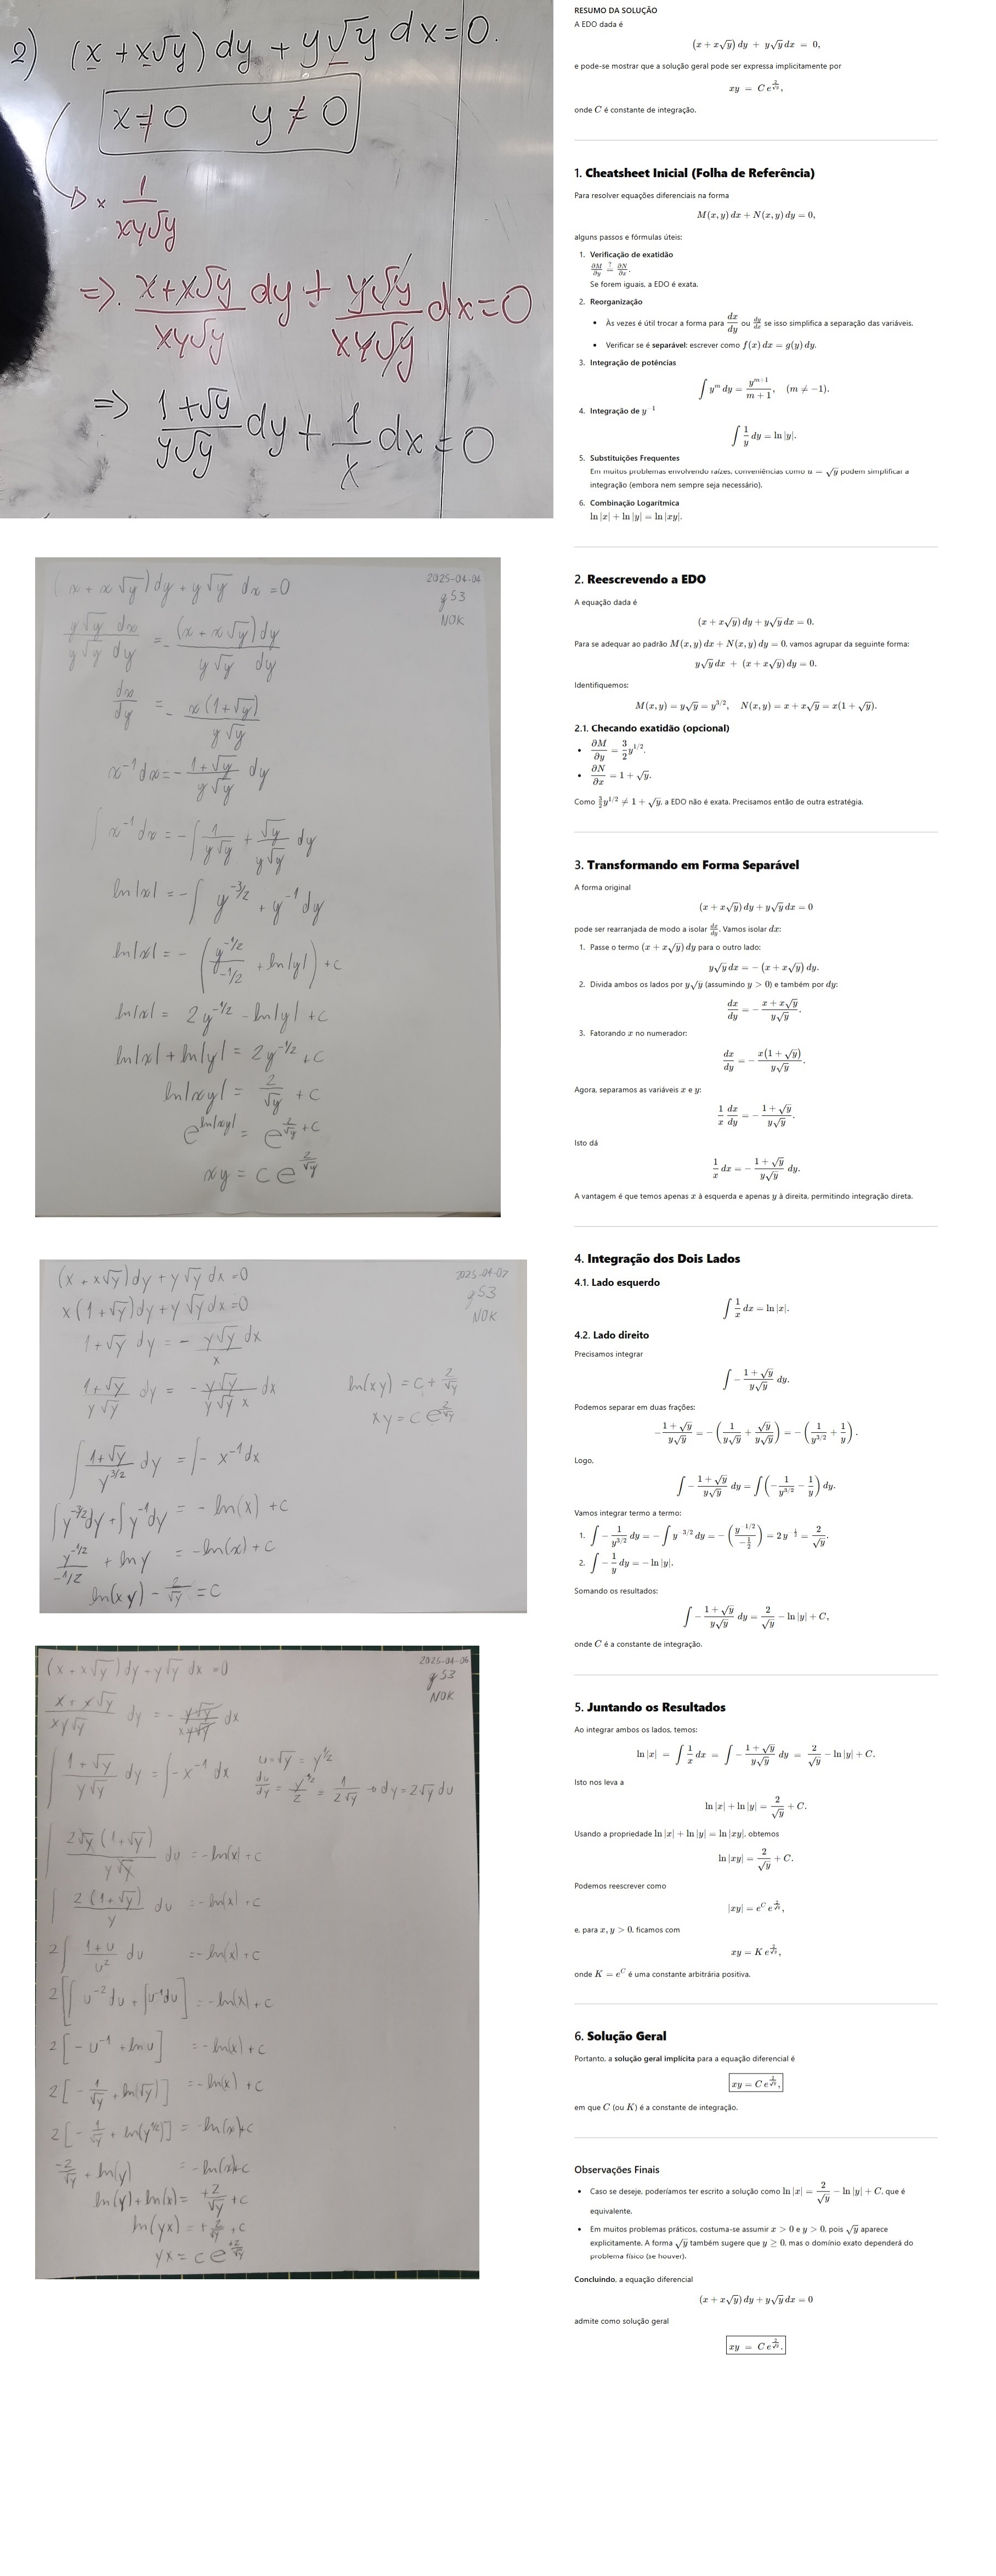 2) (x + x√y) dy + y√y dx = 0.
x ≠ 0 y ≠ 0
× 1/(xy√y)
=> (x+x√y)/(xy√y) dy + (y√y)/(xy√y) dx = 0
=> (1+√y)/(y√y) dy + 1/x dx = 0
(x + x√y) dy + y√y dx = 0
2025-04-04
g53
NOK
(y√y dx)/(y√y dy) = - ((x + x√y) dy)/(y√y dy)
dx/dy = - x(1+√y)/(y√y)
x^-1 dx = - (1+√y)/(y√y) dy
∫ x^-1 dx = - ∫ 1/(y√y) + √y/(y√y) dy
ln|x| = - ∫ y^-3/2 + y^-1 dy
ln|x| = - (y^-1/2/(-1/2) + ln|y|) + c
ln|x| = 2y^-1/2 - ln|y| + c
ln|x| + ln|y| = 2y^-1/2 + c
ln|xy| = 2/√y + c
e^ln|xy| = e^(2/√y + c)
xy = c e^(2/√y)
(x + x√y) dy + y√y dx = 0
2025-04-07
g53
NOK
x(1+√y) dy + y√y dx = 0
1+√y dy = - y√y/x dx
(1+√y)/(y√y) dy = - y√y/(y√y x) dx
∫ (1+√y)/y^3/2 dy = ∫ - x^-1 dx
∫ y^-3/2 dy + ∫ y^-1 dy = - ln(x) + c
y^-1/2/(-1/2) + ln y = -ln(x) + c
ln(xy) - 2/√y = c
ln(xy) = c + 2/√y
xy = c e^(2/√y)
(x + x√y) dy + y√y dx = 0
2025-04-06
g53
NOK
(x + x√y)/(xy√y) dy = - y√y/(xy√y) dx
∫ (1+√y)/(y√y) dy = ∫ - x^-1 dx
u = √y = y^1/2
du/dy = y^-1/2/2 = 1/(2√y) → dy = 2√y du
∫ 2√y (1+√y)/(y√y) du = - ln(x) + c
∫ 2(1+√y)/y du = - ln(x) + c
2 ∫ (1+u)/u^2 du = - ln(x) + c
2 [∫ u^-2 du + ∫ u^-1 du] = - ln(x) + c
2 [- u^-1 + ln u] = - ln(x) + c
2 [- 1/√y + ln(√y)] = - ln(x) + c
2 [- 1/√y + ln(y^1/2)] = - ln(x) + c
-2/√y + ln(y) = - ln(x) + c
ln(y) + ln(x) = +2/√y + c
ln(yx) = + 2/√y + c
yx = c e^(+2/√y)
RESUMO DA SOLUÇÃO
A EDO dada é
(x + x√y) dy + y√y dx = 0,
e pode-se mostrar que a solução geral pode ser expressa implicitamente por
xy = C e^(2/√y),
onde C é constante de integração.
1. Cheatsheet Inicial (Folha de Referência)
Para resolver equações diferenciais na forma
M(x, y) dx + N(x, y) dy = 0,
alguns passos e fórmulas úteis:
1. Verificação de exatidão
∂M/∂y ?= ∂N/∂x.
Se forem iguais, a EDO é exata.
2. Reorganização
• Às vezes é útil trocar a forma para dx/dy ou dy/dx se isso simplifica a separação das variáveis.
• Verificar se é separável: escrever como f(x) dx = g(y) dy.
3. Integração de potências
∫ y^m dy = y^(m+1)/(m+1), (m ≠ −1).
4. Integração de y^−1
∫ 1/y dy = ln |y|.
5. Substituições Frequentes
Em muitos problemas envolvendo raízes, conveniências como u = √y podem simplificar a
integração (embora nem sempre seja necessário).
6. Combinação Logarítmica
ln |x| + ln |y| = ln |xy|.
2. Reescrevendo a EDO
A equação dada é
(x + x√y) dy + y√y dx = 0.
Para se adequar ao padrão M(x, y) dx + N(x, y) dy = 0, vamos agrupar da seguinte forma:
y√y dx + (x + x√y) dy = 0.
Identifiquemos:
M(x, y) = y√y = y^3/2, N(x, y) = x + x√y = x(1 + √y).
2.1. Checando exatidão (opcional)
• ∂M/∂y = 3/2 y^1/2.
• ∂N/∂x = 1 + √y.
Como 3/2 y^1/2 ≠ 1 + √y, a EDO não é exata. Precisamos então de outra estratégia.
3. Transformando em Forma Separável
A forma original
(x + x√y) dy + y√y dx = 0
pode ser rearranjada de modo a isolar dx/dy. Vamos isolar dx:
1. Passe o termo (x + x√y) dy para o outro lado:
y√y dx = − (x + x√y) dy.
2. Divida ambos os lados por y√y (assumindo y > 0) e também por dy:
dx/dy = − (x + x√y)/(y√y).
3. Fatorando x no numerador:
dx/dy = − x(1 + √y)/(y√y).
Agora, separamos as variáveis x e y:
1/x dx/dy = − (1 + √y)/(y√y).
Isto dá
1/x dx = − (1 + √y)/(y√y) dy.
A vantagem é que temos apenas x à esquerda e apenas y à direita, permitindo integração direta.
4. Integração dos Dois Lados
4.1. Lado esquerdo
∫ 1/x dx = ln |x|.
4.2. Lado direito
Precisamos integrar
∫ − (1 + √y)/(y√y) dy.
Podemos separar em duas frações:
− (1 + √y)/(y√y) = − (1/(y√y) + √y/(y√y)) = − (1/y^3/2 + 1/y).
Logo,
∫ − (1 + √y)/(y√y) dy = ∫ (− 1/y^3/2 − 1/y) dy.
Vamos integrar termo a termo:
1. ∫ − 1/y^3/2 dy = − ∫ y^−3/2 dy = − (y^−1/2/(−1/2)) = 2 y^−1/2 = 2/√y.
2. ∫ − 1/y dy = − ln |y|.
Somando os resultados:
∫ − (1 + √y)/(y√y) dy = 2/√y − ln |y| + C,
onde C é a constante de integração.
5. Juntando os Resultados
Ao integrar ambos os lados, temos:
ln |x| = ∫ 1/x dx = ∫ − (1 + √y)/(y√y) dy = 2/√y − ln |y| + C.
Isto nos leva a
ln |x| + ln |y| = 2/√y + C.
Usando a propriedade ln |x| + ln |y| = ln |xy|, obtemos
ln |xy| = 2/√y + C.
Podemos reescrever como
|xy| = e^C e^(2/√y),
e, para x, y > 0, ficamos com
xy = K e^(2/√y),
onde K = e^C é uma constante arbitrária positiva.
6. Solução Geral
Portanto, a solução geral implícita para a equação diferencial é
xy = C e^(2/√y),
em que C (ou K) é a constante de integração.
Observações Finais
• Caso se deseje, poderíamos ter escrito a solução como ln |x| = 2/√y − ln |y| + C, que é
equivalente.
• Em muitos problemas práticos, costuma-se assumir x > 0 e y > 0, pois √y aparece
explicitamente. A forma √y também sugere que y ≥ 0, mas o domínio exato dependerá do
problema físico (se houver).
Concluindo, a equação diferencial
(x + x√y) dy + y√y dx = 0
admite como solução geral
xy = C e^(2/√y).